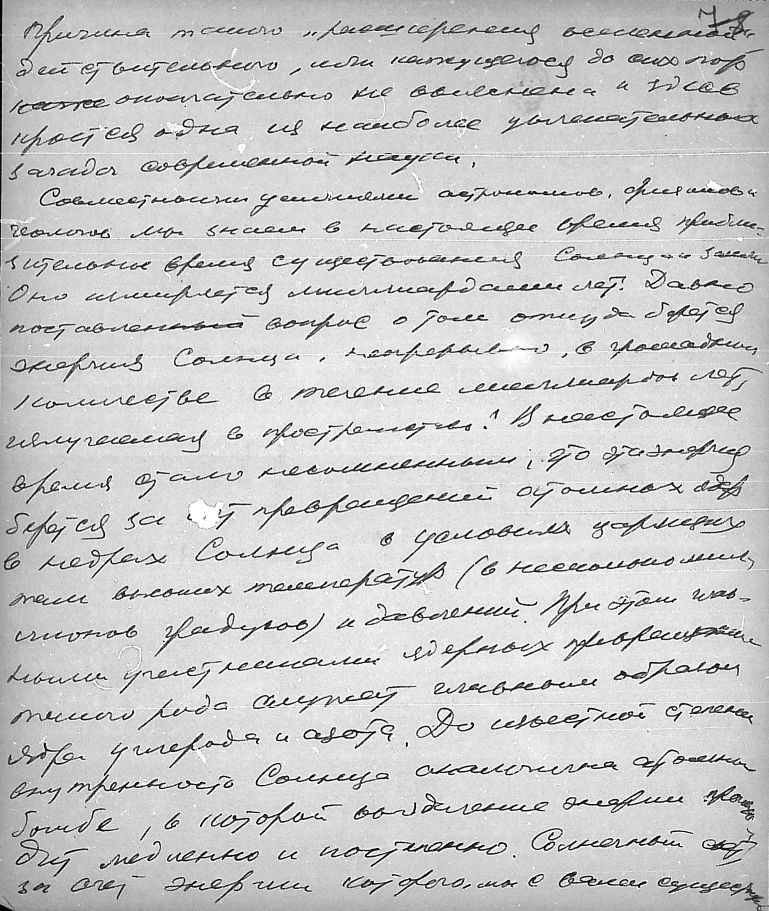 78
Причина такого „расширения вселенной“
действительного, или кажущегося до сих пор
окончательно не выяснена и здесь
кроется одна из наиболее увлекательных
загадок современной науки.
Совместными усилиями астрономов, физиков и
геологов мы знаем в настоящее время прибли-
зительное время существования Солнца и земли
Оно измеряется миллиардами лет. Давно
поставлен вопрос о том откуда берется
энергия Солнца, непрерывно, в громадном
количестве в течение миллиардов лет,
излучаемая в пространство? В настоящее
время стало несомненным, что эта энергия
берется за счет превращений атомных ядер
в недрах Солнца в условиях царящих
там высоких температур (в несколько мил-
лионов градусов) и давлений. При этом глав-
ными участниками ядерных превращений
такого рода служат главным образом
ядра углерода и азота. До известной степени
внутренность Солнца аналогична атомной
бомбе, в которой выделение энергии происхо-
дит медленно и постепенно. Солнечный свет
за счет энергии которого мы с вами существу-